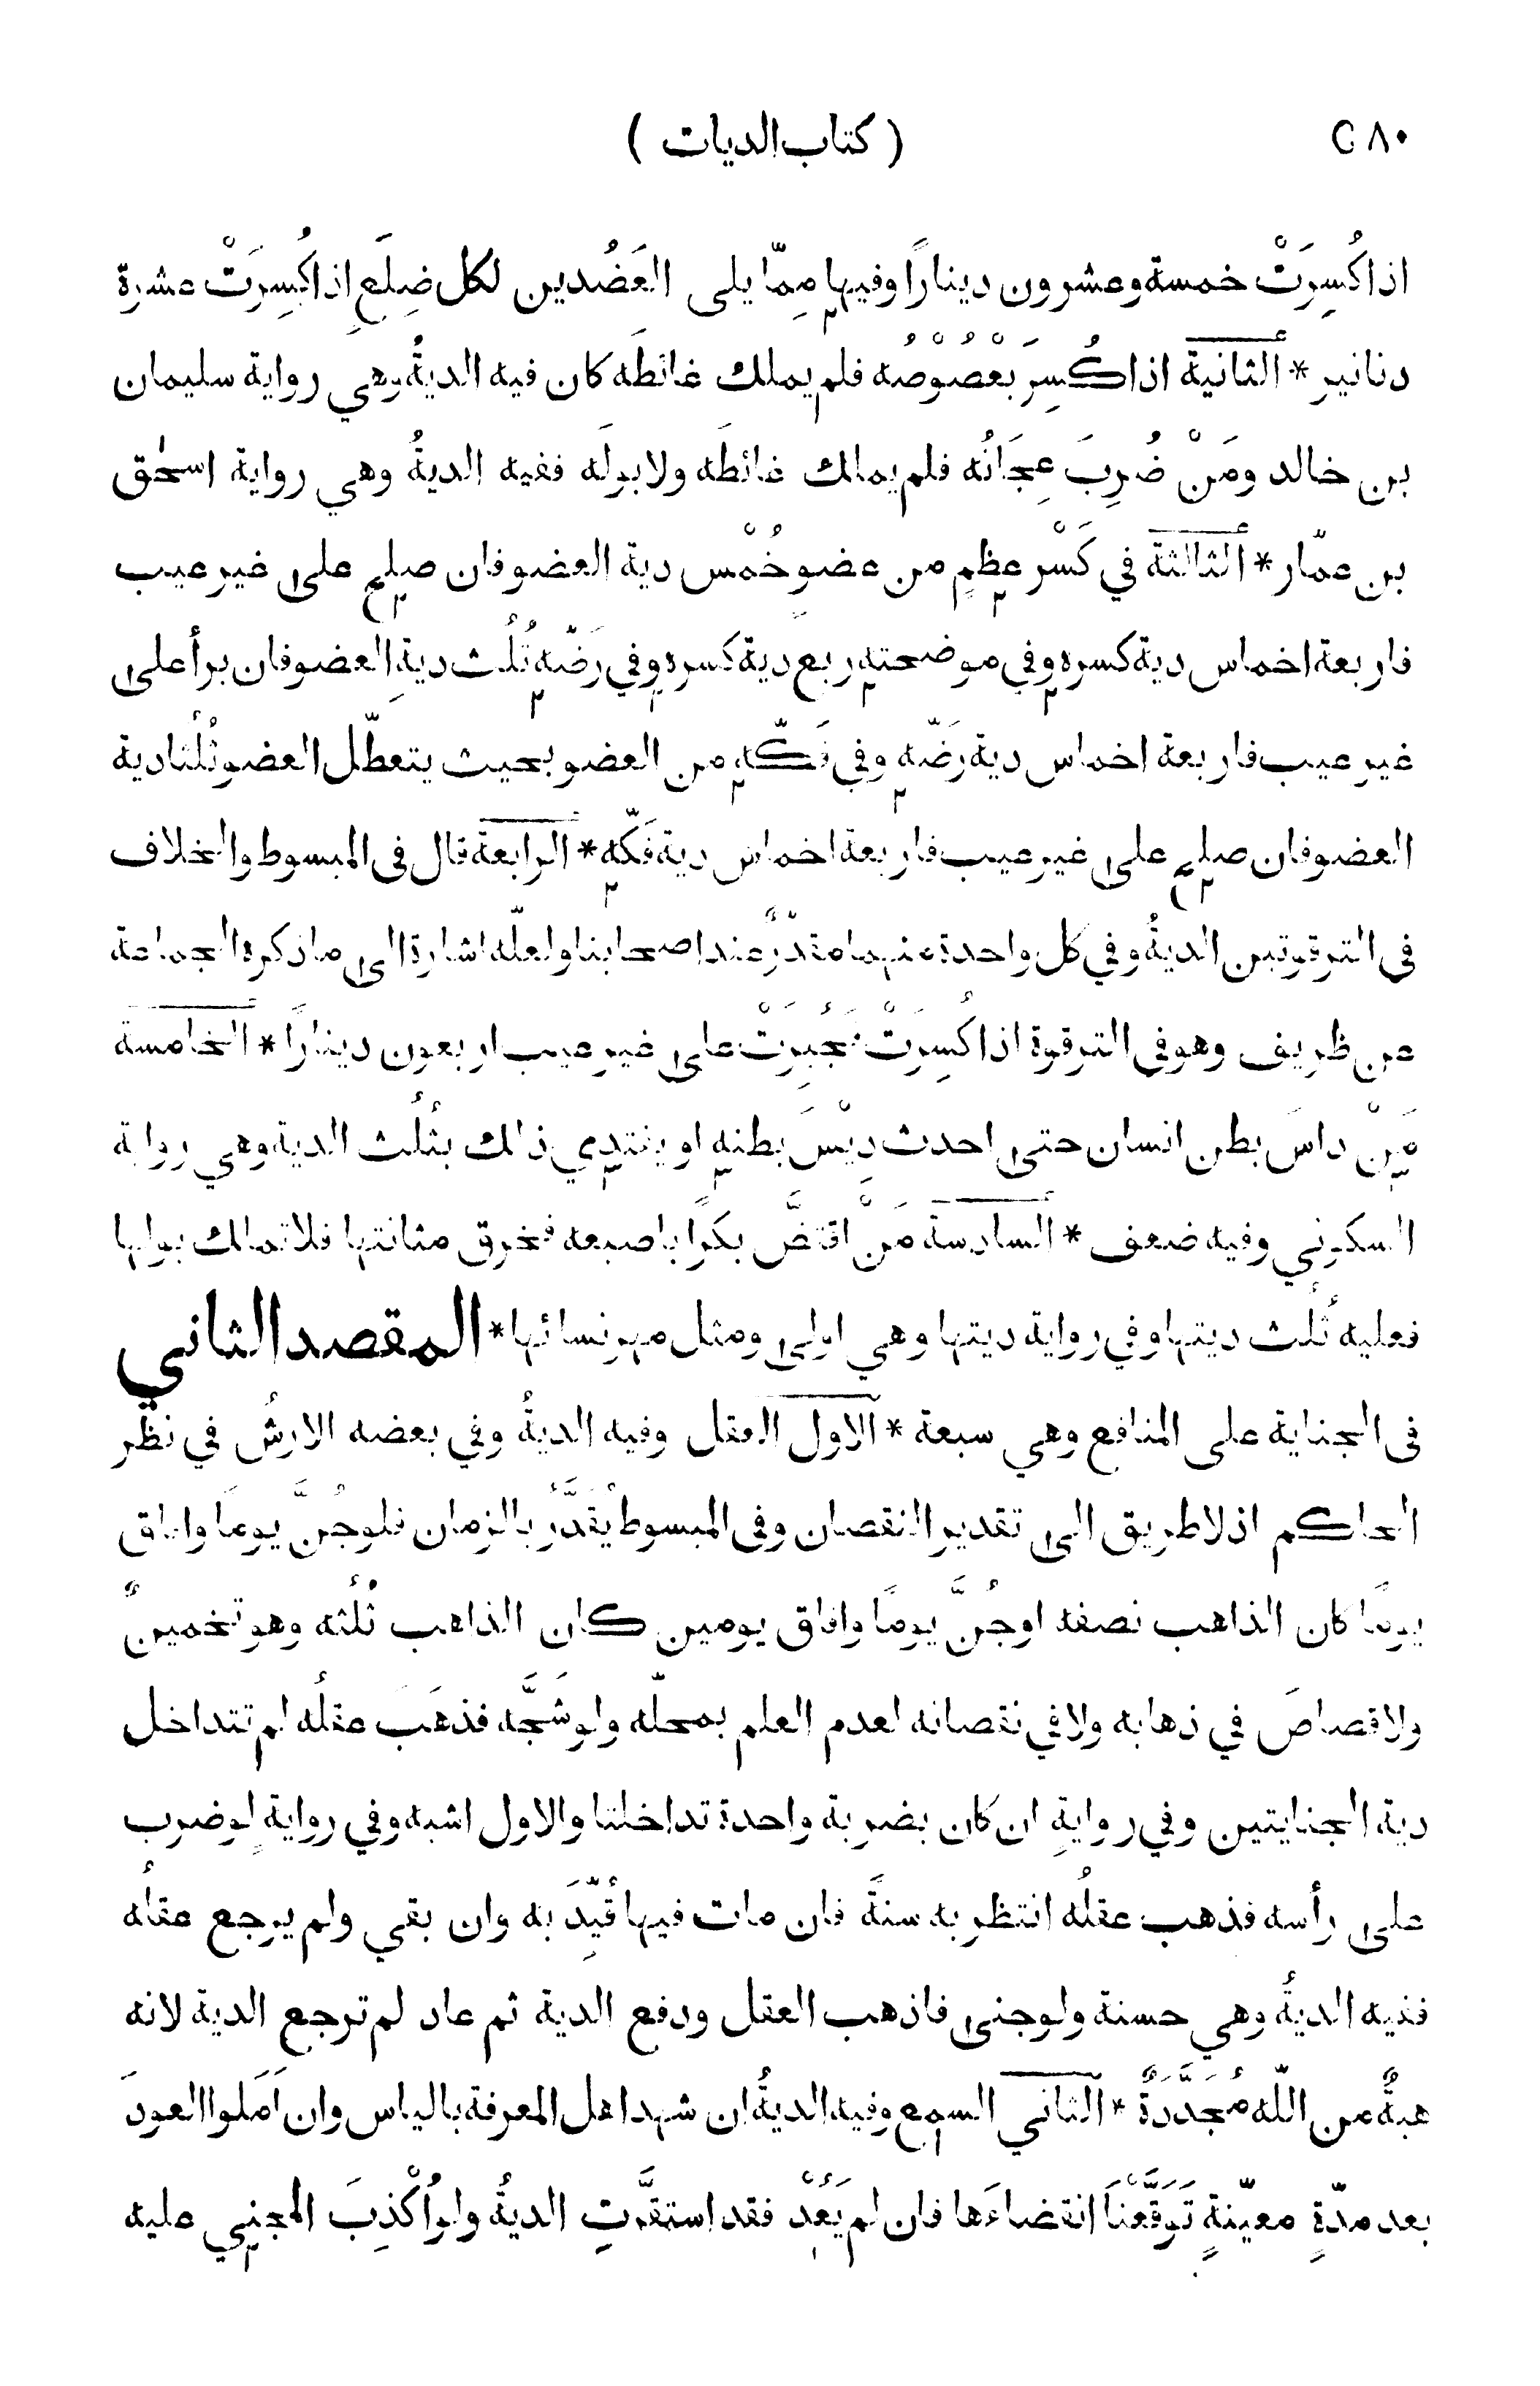 ٢٨٠ ( كتاب الديات )
اذا كُسِرَتْ خمسة وعشرون دينارًا وفيها مِمّا يلى العَضُدين لكل ضِلَعٍ اذا كُسِرَتْ عشرة
دنانير * الثانية اذا كُسِرَ بَعْصُوْصُه فلم يملك غائطَه كان فيه الديةُ وهي رواية سليمان
بن خالد ومَنْ ضُرِبَ عِجَانُه فلم يملك غائطَه ولا بولَه ففيه الديةُ وهي رواية اسحٰق
بن عمّار * الثالثة في كَسْرِ عظمٍ من عضوٍ خُمْس دية العضو فان صلح على غير عيب
فاربعة اخماس دية كسره وفي موضحته ربع دية كسره وفي رَضّه ثُلُث ديةِ العضو فان برأ على
غير عيب فاربعة اخماس دية رَضّه وفي فَكّه من العضو بحيث يتعطّل العضو ثُلُثا دية
العضو فان صلح على غير عيب فاربعة اخماس دية فَكّه * الرابعة قال فى المبسوط والخلاف
فى الترقوتين الديةُ وفي كل واحدة منهما مقدّرٌ عند اصحابنا ولعلّه اشارة الى ما ذكره الجماعة
عن ظريف وهو فى الترقوة اذا كُسِرَتْ فجُبِرَتْ على غير عيب اربعون دينارًا * الخامسة
مَنْ داسَ بطن انسان حتى احدث دِيْسَ بطنه او يفتدي ذلك بثُلُث الدية وهي رواية
السكوني وفيه ضعف * السادسة مَنْ اقتضَّ بكرًا باصبعه فخرق مثانتها فلا تملك بولها
فعليه ثُلُث ديتها وفي رواية ديتها وهي اولى ومثل مهر نسائها * المقصد الثاني
فى الجناية على المنافع وهي سبعة * الاول العقل وفيه الديةُ وفي بعضه الارشُ في نظر
الحاكم اذ لا طريق الى تقدير النقصان وفى المبسوط يُقَدَّرُ بالزمان فلو جُنَّ يومًا وافاق
يومًا كان الذاهب نصفه او جُنَّ يومًا وافاق يومين كان الذاهب ثُلُثه وهو تخمينٌ
ولا قصاصَ في ذهابه ولا في نقصانه لعدم العلم بمحلّه ولو شَجَّه فذهَبَ عقلُه لم تتداخل
دية الجنايتين وفي روايةٍ ان كان بضربة واحدة تداخلتا والاول اشبه وفي روايةٍ لو ضرب
على رأسه فذهب عقلُه انتظر به سنةً فان مات فيها قُيِّدَ به وان بقي ولم يرجع عقلُه
ففيه الديةُ وهي حسنة ولو جنى فاذهب العقل ودفع الدية ثم عاد لم ترجع الدية لانه
هبةٌ من اللّه مُجَدَّدَةٌ * الثاني السمع وفيه الديةُ ان شهد اهل المعرفة بالياس وان اَمَلوا العودَ
بعد مدّةٍ معيّنةٍ تَوَقَّعْنَا انقضاءَها فان لم يَعُدْ فقد استقرَّتِ الديةُ ولو اُكْذِبَ المجني عليه